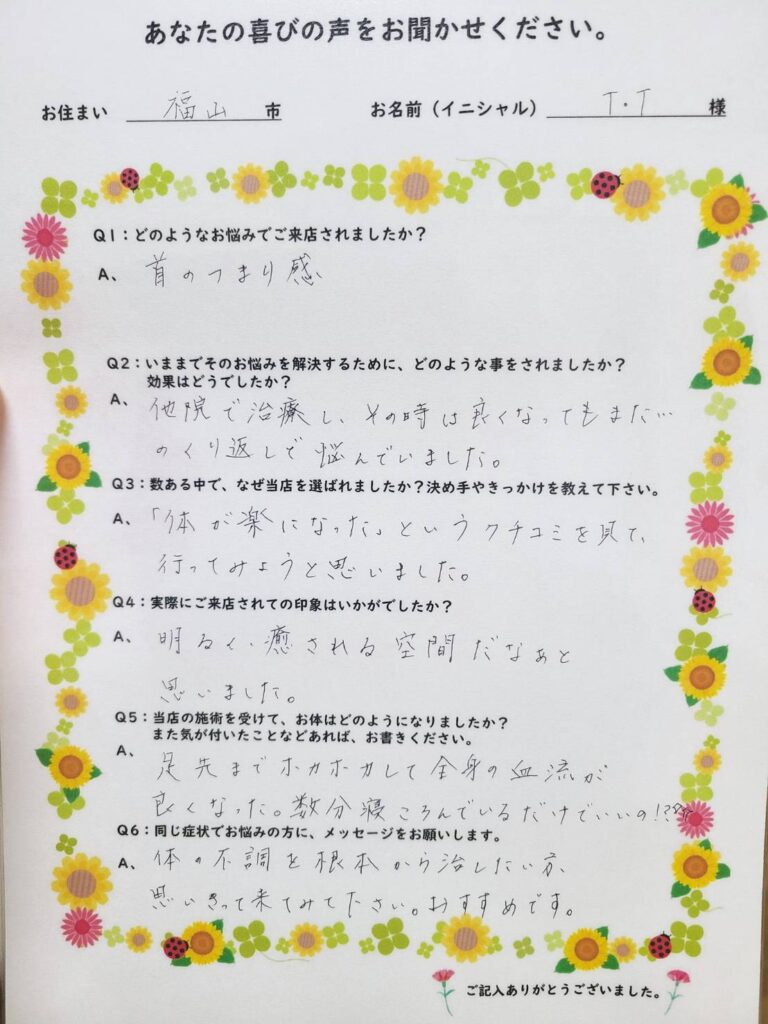 あなたの喜びの声をお聞かせください。
お住まい 福山 市 お名前（イニシャル） T・T 様
Q1：どのようなお悩みでご来店されましたか？
A、首のつまり感
Q2：いままでそのお悩みを解決するために、どのような事をされましたか？
効果はどうでしたか？
A、他院で治療し、その時は良くなってもまた…
のくり返しで悩んでいました。
Q3：数ある中で、なぜ当店を選ばれましたか？決め手やきっかけを教えて下さい。
A、「体が楽になった」というクチコミを見て、
行ってみようと思いました。
Q4：実際にご来店されての印象はいかがでしたか？
A、明るく、癒される空間だなぁと
思いました。
Q5：当店の施術を受けて、お体はどのようになりましたか？
また気が付いたことなどあれば、お書きください。
A、足先までポカポカして全身の血流が
良くなった。数分寝ころんでいるだけでいいの!?
Q6：同じ症状でお悩みの方に、メッセージをお願いします。
A、体の不調を根本から治したい方、
思いきって来てみて下さい。おすすめです。
ご記入ありがとうございました。